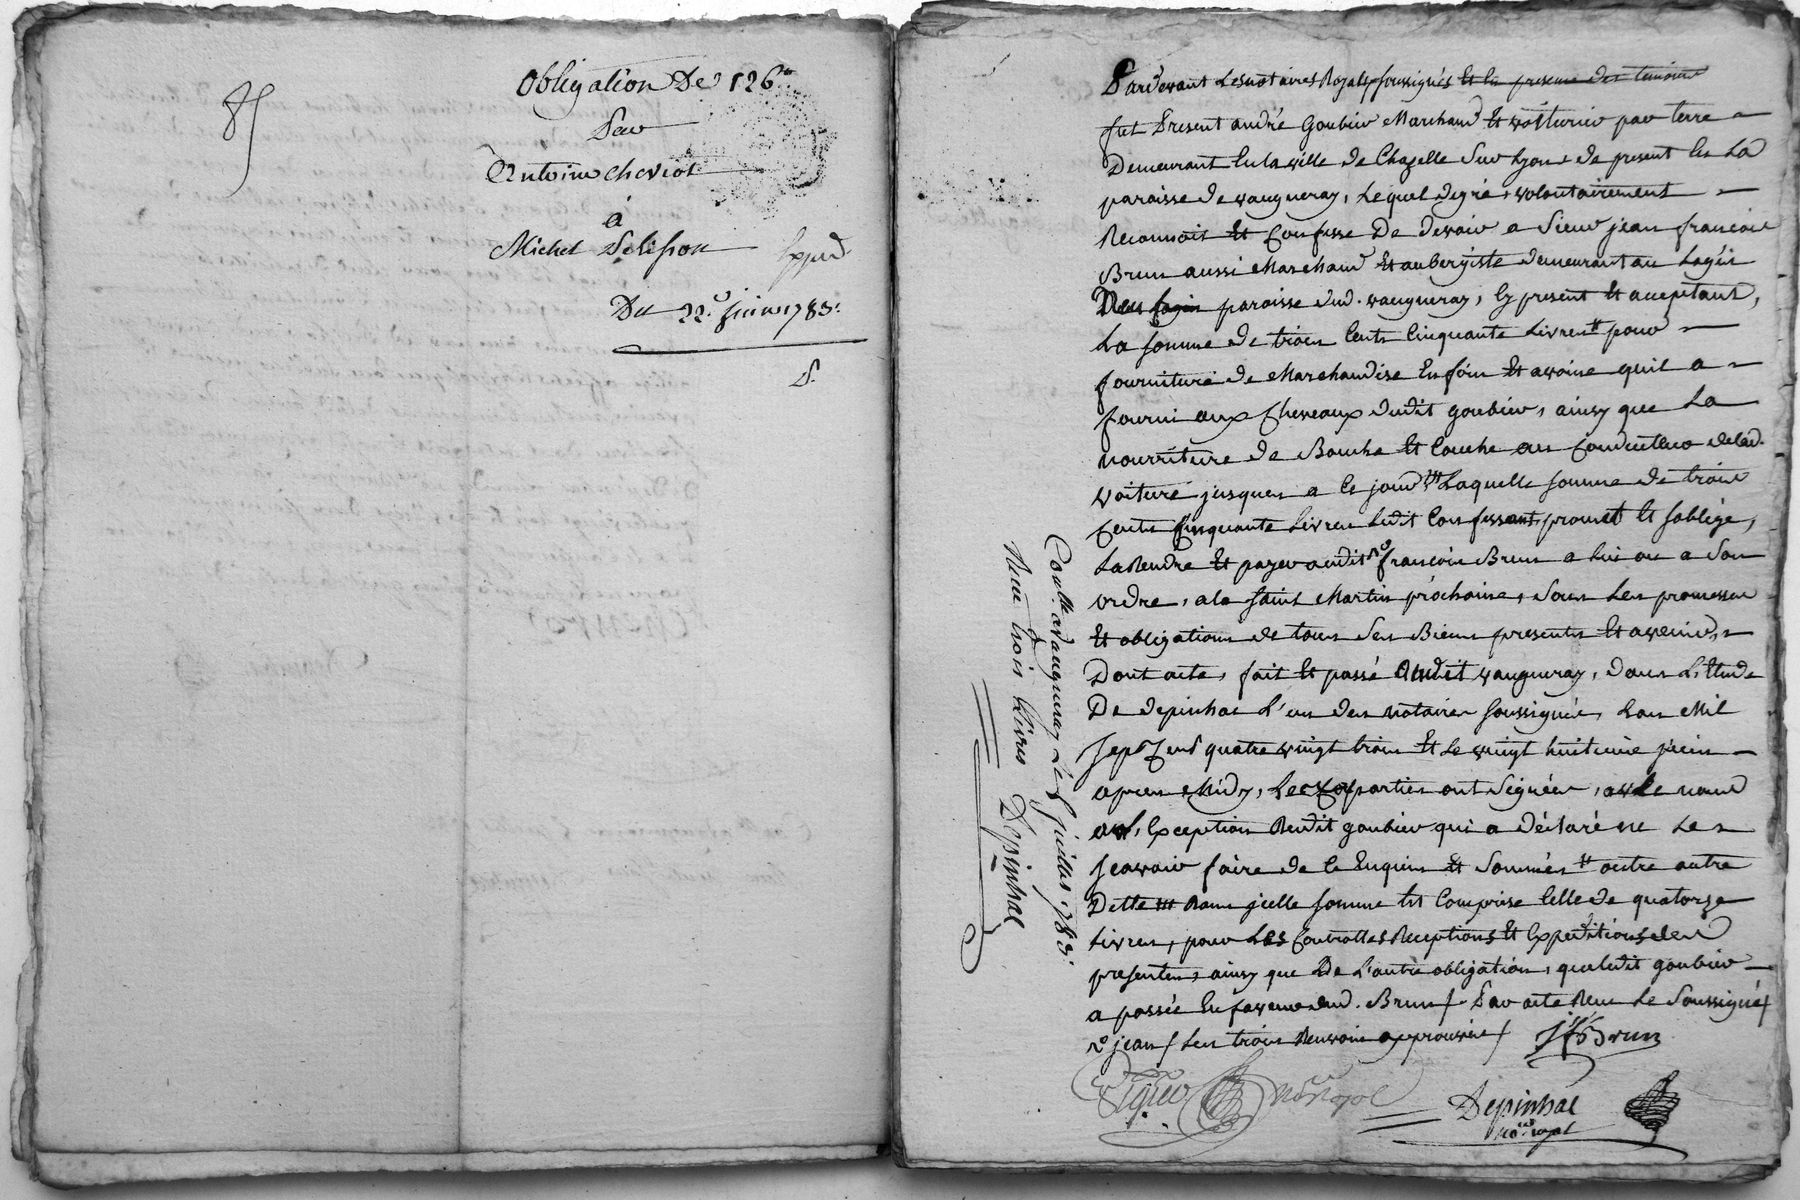 85
Obligation De 126ᵗᵗ
Par
Antoine cheviot
à
Michel Pelisson
Expied
Du 22ᵉ juin 1783.
Pardevant Les notaires Royals soussignés Et En presence des temoins
fut Present andré Goubier Marchand Et voiturier par terre
Demeurant En la ville de Chazelle Sur Lyon, de present En La
paroisse de vaugneray, Lequel de gré, volontairement
Reconnoit Et Confesse De Devoir a Sieur jean françois
Brun aussi Marchand Et aubergiste demeurant au Logis
paroisse dud. vaugneray, Cy present Et acceptant,
La somme de trois Cents Cinquante Livres pour
fourniture de Marchandise En foin Et avoine quil a
fourni aux Chevaux dudit goubier, ainsy que La
nourriture de Bouche Et Couche au Conducteur delad.
voiture jusques a Ce jour Laquelle somme de trois
Cents Cinquante Livres Ledit Confessant, promet Et soblige,
La Rendre Et payer audit Sr françois Brun a Lui ou a Son
ordre, a la Saint Martin prochaine, Sous Les promesses
Et obligations de tous Ses Biens presents Et avenir,
Dont acte, fait Et passé Audit vaugneray, dans L'Etude
De depinhac L'un des notaires soussignés, Lan Mil
Sept Cens quatre vingt trois Et Le vingt huitieme juin
apres Midy, Les parties ont Signées, avec nous
Exception dudit goubier qui a déclaré ne Le
Scavoir faire de Ce Enquis Et Sommés outre autre
Dette dans jcelle somme Est Comprise Celle de quatorze
Livres, pour Les Controlles Receptions Et Expeditions des
presentes, ainsy que De L'autre obligation, que Ledit goubier
a passée En faveur dud. Brun / Par acte Reçu Le Soussigné /
jean / Les trois Renvois approuvés / JfBrun
Nore Royal
Depinhac
nore royal
Conllé a Vaugneray Le 8 juillet 1783.
Reçu trois Livres Depinhac